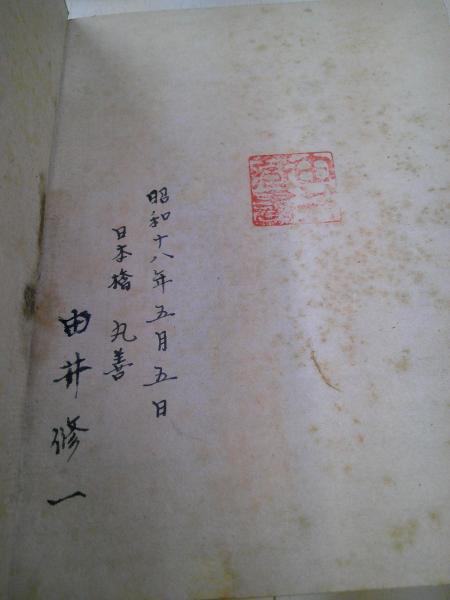 昭和十八年五月五日
日本橋 丸善
由井修一